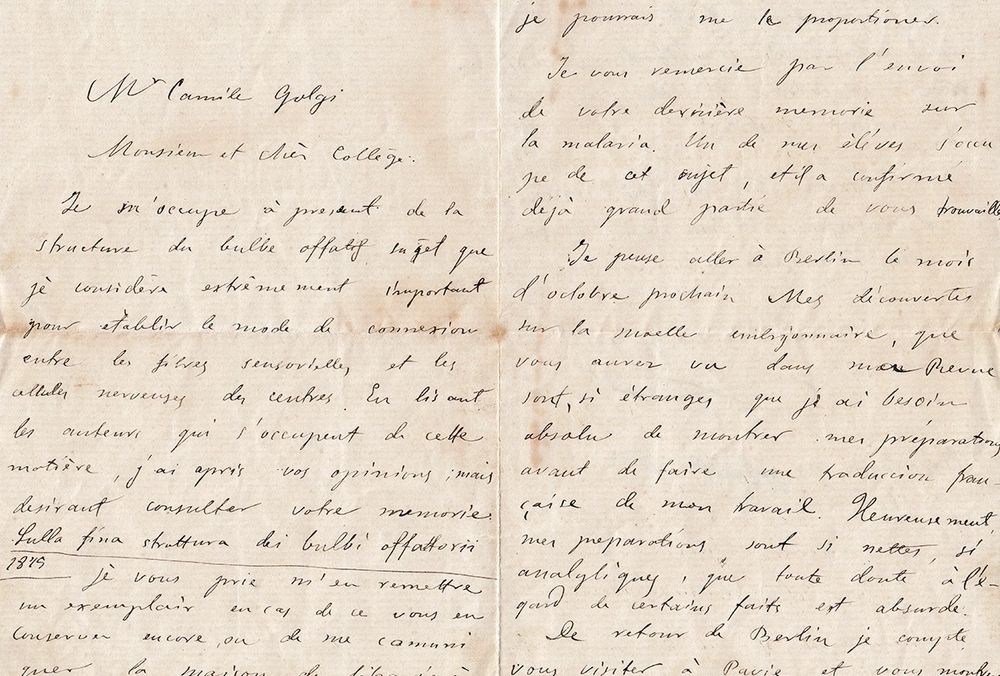 Mr Camile Golgi
Monsieur et chèr Collège:
Je m'occupe à present de la
structure du bulbe olfatif sujet que
jè considèrè extrêmement important
pour etablir le mode de connexion
entre les fibres sensorielles et les
cellules nerveuses des centres. En lisant
les auteurs qui s'occupent de cette
matière, j'ai apris vos opinions; mais
desirant consulter votre memorie
Sulla fina struttura dei bulbi olfattorii
1875
je vous prie m'en remettre
un exemplair en cas de ce vous en
conserver encore, ou de me camuni
quer la maison de
je pourrais me le proportioner.
Je vous remercie par l'envoi
de votre dernière memorie sur
la malaria. Un de mes élèves s'ocu
pe de cet sujet, et il a confirmé
déjà grand partie de vous trouvaille
Je pense aller à Berlin le mois
d'octobre prochain Mes découvertes
sur la moelle embryonnaire, que
vous aurez vu dans mon Revue
sont si étranges que jè ai besoin
absolu de montrer mes préparations
avant de faire une traduccion fran-
çaise de mon travail. Heureusement,
mes preparations sont si nettes, si
analytiques, que toute doute à l'é-
gard de certains faits est absurde.
De retour de Berlin je compte
vous visiter à Pavie et vous